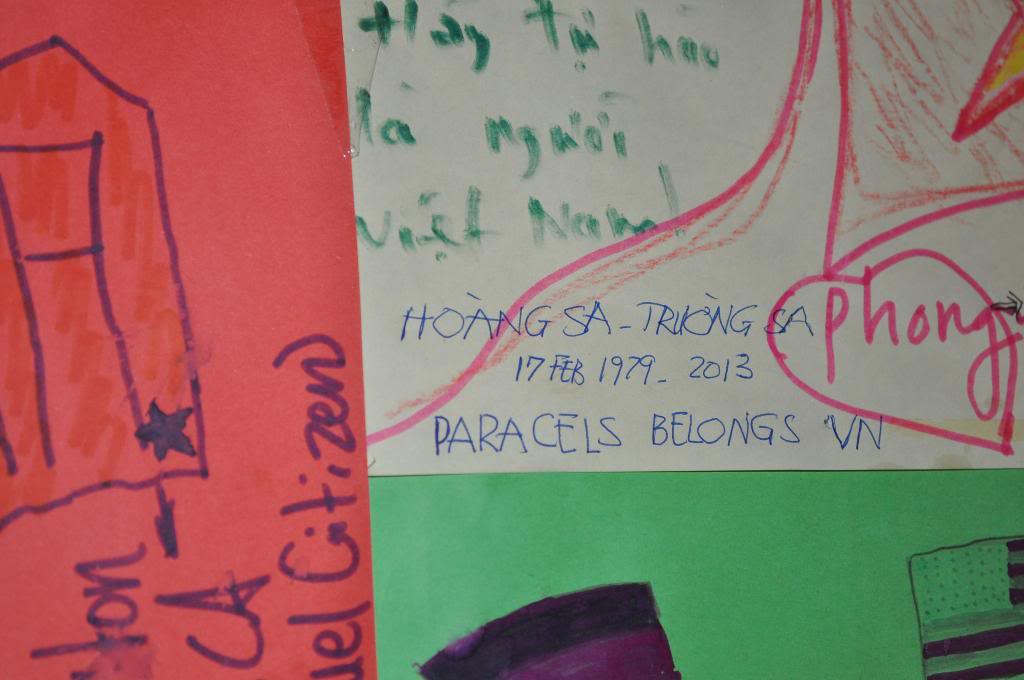 Hãy tự hào
là người
Việt Nam!
HOÀNG SA - TRƯỜNG SA
17 FEB 1979 - 2013
PARACELS BELONGS VN
Phong
CA
Citizen